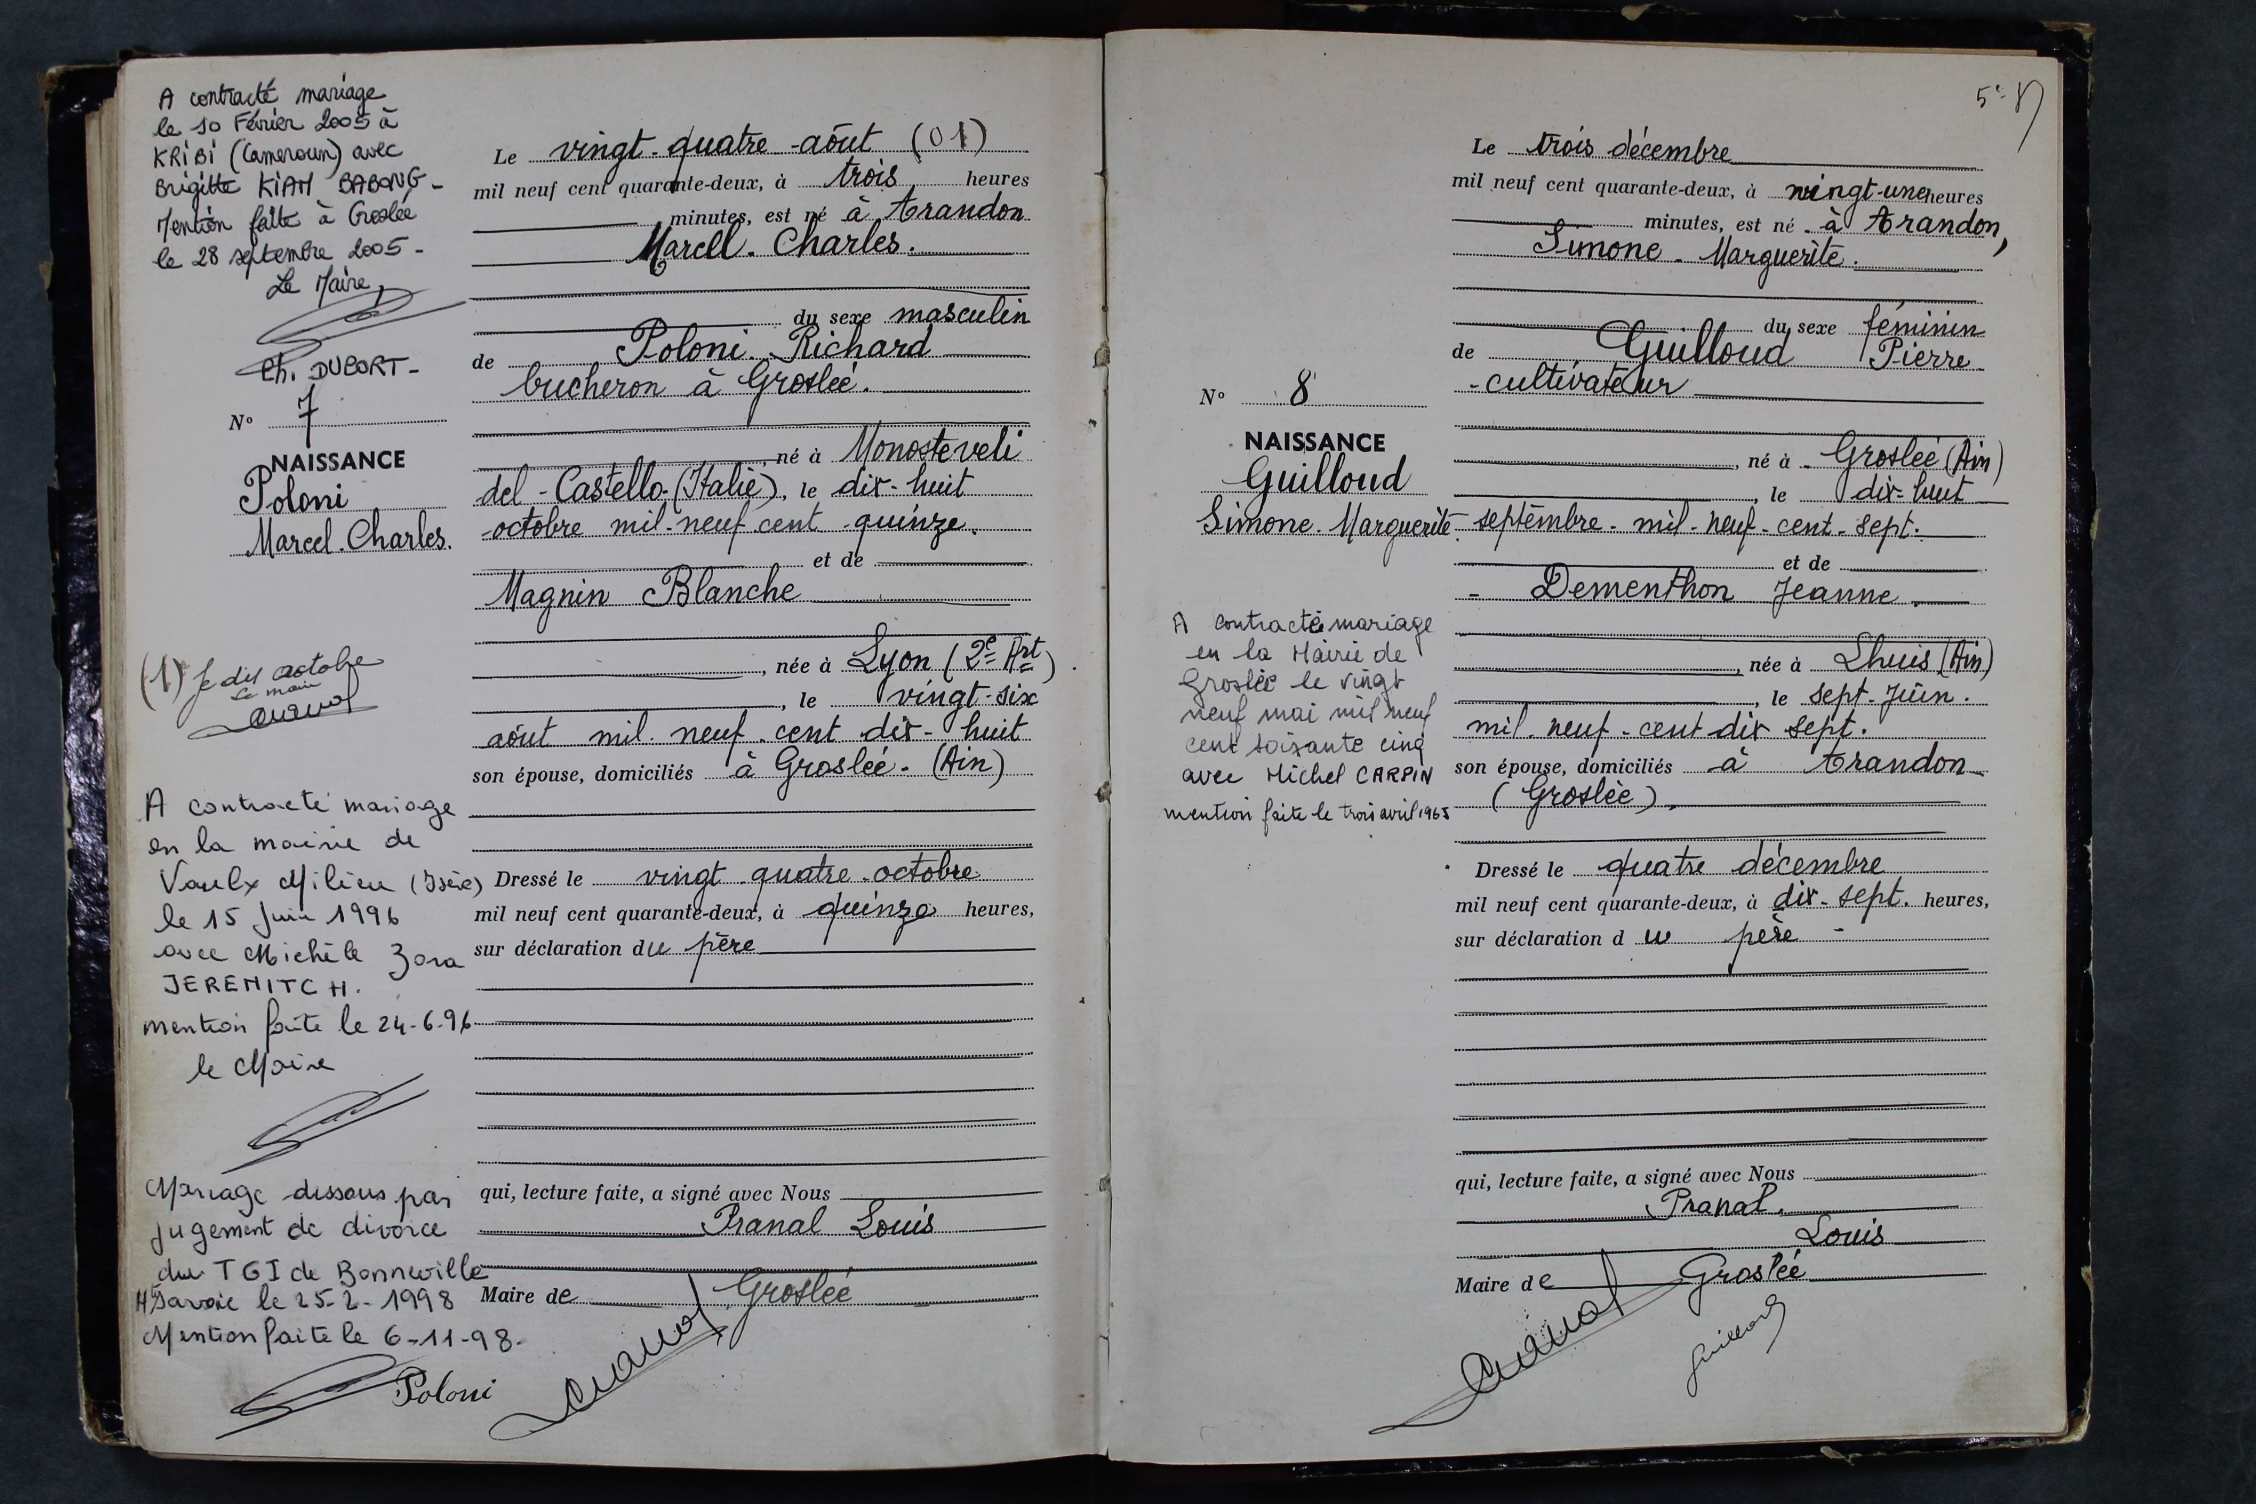 A contracté mariage
le 10 Février 2005 à
KRIBI (Cameroun) avec
Brigitte KIAM BABONG -
Mention faite à Groslée
le 28 septembre 2005 -
Le Maire,
Ch. DUBORT -
N° 7
NAISSANCE
Poloni
Marcel. Charles.
(1) Je dis octobre
Le maire
A contracté mariage
en la mairie de
Vaulx Milieu (Isère)
le 15 Juin 1996
avec Michèle Zora
JEREMITCH.
mention faite le 24-6-96
le Maire
Mariage dissous par
jugement de divorce
du TGI de Bonneville
Hte Savoie le 25-2-1998
Mention faite le 6-11-98.
Poloni
Le vingt-quatre-aôut (01)
mil neuf cent quarante-deux, à trois heures
minutes, est né à Arandon
Marcel. Charles.
du sexe masculin
de Poloni. Richard
bucheron à Groslée.
né à Monosteveli
del-Castello-(Italie), le dix-huit
octobre mil-neuf cent-quinze.
et de
Magnin Blanche
, née à Lyon (2e Art)
, le vingt-six
aôut mil. neuf. cent dix-huit
son épouse, domiciliés à Groslée. (Ain)
Dressé le vingt quatre octobre
mil neuf cent quarante-deux, à quinze heures,
sur déclaration du père
qui, lecture faite, a signé avec Nous
Pranal Louis
Maire de Groslée
5e
Le trois décembre
mil neuf cent quarante-deux, à vingt-une heures
minutes, est né à Arandon,
Simone. Marguerite.
du sexe féminin
de Guilloud Pierre
- cultivateur
N° 8
NAISSANCE
Guilloud
Simone. Marguerite.
, né à Groslée (Ain)
, le dix-huit
septembre-mil-neuf-cent-sept.
et de
- Dementhon Jeanne.
A contracté mariage
en la Mairie de
Groslée le vingt
neuf mai mil neuf
cent soixante cinq
avec Michel CARPIN
mention faite le trois avril 1965
, née à Lhuis (Ain)
, le sept-Juin.
mil. neuf-cent dix sept.
son épouse, domiciliés à Arandon
(Groslée).
Dressé le quatre décembre
mil neuf cent quarante-deux, à dix-sept. heures,
sur déclaration du père -
qui, lecture faite, a signé avec Nous
Pranal.
Louis
Maire de Groslée
Guilloud